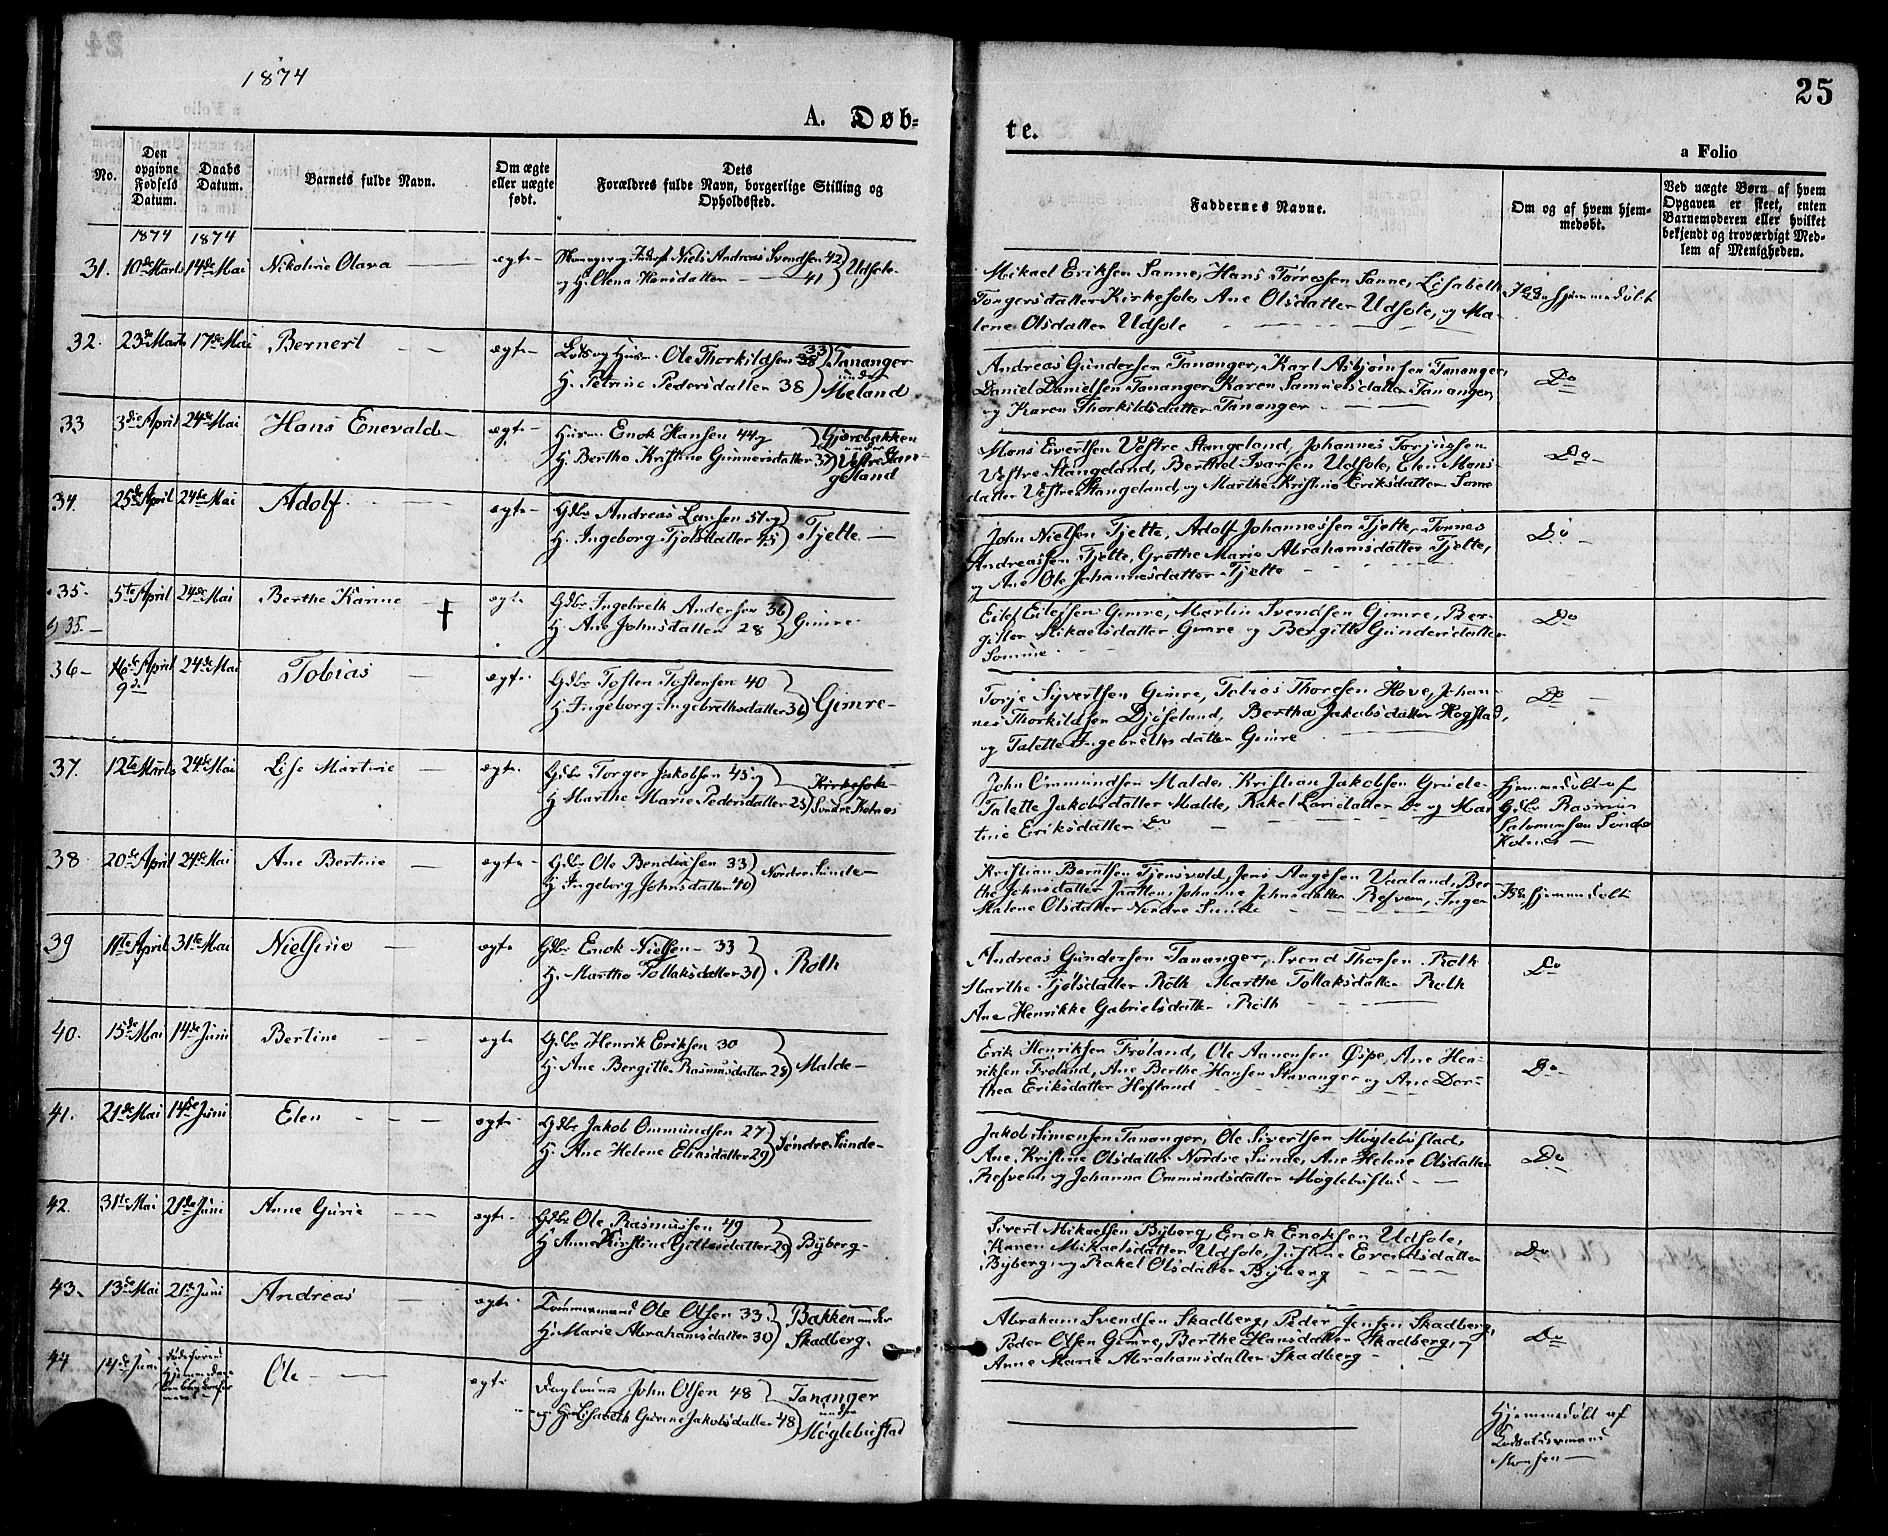 1874
25
A. Døb-
te.
a Folio
No.
Den opgivne Fødsels Datum.
Daabs Datum.
Barnets fulde Navn.
Om ægte eller uægte født.
Dets Forældres fulde Navn, borgerlige Stilling og Opholdssted.
Faddernes Navne.
Om og af hvem hjemmedøbt.
Ved uægte Børn af hvem Opgaven er skeet, enten Barnemoderen eller hvilket bekjendt og troværdigt Medlem af Menigheden.
1874 1874
31. 10de Marts 14de Mai Nikoline Olava ægte
Niels Andreas Svendsen 42
og H. Olena Hansdatter 41 Udsole
Mikael Eriksen Sanne, Hans Tørressen Sanne, Lisabeth
Torgersdatter Kirkesole, Ane Olsdatter Udsole, og Ma-
lene Olsdatter Udsole
Ikke hjemmedøbt
32. 23de Marts 17de Mai Bernert ægte
Lods og Husm. Ole Thorkildsen 33
H. Petrine Pedersdatter 38 Tananger under Meland
Andreas Gundersen Tananger, Karl Asbjørnsen Tananger,
Daniel Danielsen Tananger Karen Samuelsdatter Tananger,
og Karen Thorkildsdatter Tananger
Do
33 3die April 24de Mai Hans Enevald ægte
Husm. Enok Hansen 44 og
H. Berthe Kristine Gunnersdatter 37 Gjærdbakken under Vestre Stangeland
Mons Evertsen Vestre Stangeland, Johannes Torjussen
Vestre Stangeland, Berthel Ivarsen Udsole, Elen Mons-
datter Vestre Stangeland, og Marthe Kristine Eriksdatter Sømme
Do
34. 25de April 24de Mai Adolf ægte
Gdbr Andreas Larsen 51 og
H. Ingeborg Tjølsdatter 45 Tjelte
John Nielsen Tjelte, Adolf Johannessen Tjelte, Tønnes
Andreassen Tjelte, Grethe Marie Abrahamsdatter Tjelte,
og Ane Ole Johannesdatter Tjelte
Do
35. 5te April 24de Mai Berthe Karine † ægte
Gdbr Ingebreth Andersen 36
H. Ane Johnsdatter 28 Gimre
35.
Eilef Eilefsen Gimre, Martin Svendsen Gimre, Ber-
gitte Mikaelsdatter Gimre og Bergitte Gundersdatter
Sømme
Do
36 16de April 24de Mai Tobias ægte
9de
Gdbr Tosten Tostensen 40
H. Ingeborg Ingebrethsdatter 36 Gimre
Torje Syvertsen Gimre, Tobias Thoresen Hove, Johan-
nes Thorkildsen Djøseland, Bertha Jakobsdatter Hogstad,
og Talette Ingebrethsdatter Gimre
Do
37. 12te Marts 24de Mai Lise Martine ægte
Gdbr Torger Jakobsen 45 og
H. Marthe Marie Pedersdatter 25 Kirkesole Søndre Kolnes
John Ommundsen Malde, Kristian Jakobsen Grude
Talette Jakobsdatter Malde, Rakel Larsdatter Do og Mar-
tine Eriksdatter Do
Hjemmedøbt af
Gdbr Rasmus
Salomonsen Søndre
Kolnes
38 20de April 24de Mai Ane Bertine ægte
Gdbr Ole Bendixsen 33
H. Ingeborg Johnsdatter 40 Nordre Sunde
Kristian Berntsen Tjensvold, Jens Aagesen Vaaland, Ber-
the Johnsdatter Jaatten, Johanne Johnsdatter Refvem, Inger
Malene Olsdatter Nordre Sunde
Ikke hjemmedøbt
39 11te April 31te Mai Nielsine ægte
Gdbr Enok Nielsen 33
H. Marthe Tollaksdatter 31 Roth
Andreas Gundersen Tananger, Svend Thorsen Roth
Marthe Tjølsdatter Roth Marthe Tollaksdatter Roth
Ane Henrikke Gabrielsdatter Roth
Do
40. 15de Mai 14de Juni Bertine ægte
Gdbr Henrik Eriksen 30
H. Ane Bergitte Rasmusdatter 28 Malde
Erik Henriksen Frøland, Ole Aanensen Øspe, Ane Hen-
riksen Frøland, Ane Berthe Hansen Stavanger og Ane Doro-
thea Eriksdatter Hofland
Do
41. 21de Mai 14de Juni Elen ægte
Gdbr Jakob Ommundsen 27
H. Ane Helene Eliasdatter 29 Søndre Sunde
Jakob Simonsen Tananger, Ole Sivertsen Møglebustad,
Ane Kristine Olsdatter Nordre Sunde, Ane Helene Olsdatter
Refvem, og Johanna Ommundsdatter Møglebustad
Do
42. 31te Mai 21de Juni Anne Gurie ægte
Gdbr Ole Rasmussen 49
H. Anne Kirstine Gitlesdatter 29 Byberg
Sivert Mikaelsen Byberg, Enok Enoksen Udsole,
Karen Mikaelsdatter Udsole, Justine Evendsdatter
Byberg, og Rakel Olsdatter Byberg
Do
43. 13de Mai 21de Juni Andreas ægte
Tømmermand Ole Olsen 33
H. Marie Abrahamsdatter 30 Bakken under Skadberg.
Abraham Svendsen Skadberg, Peder Jensen Skadberg,
Peder Olsen Gimre, Berthe Hansdatter Skadberg, og
Anne Marie Abrahamsdatter Skadberg
Do
44 14de Juni Ole ægte
Daglønner John Olsen 48
og H. Lisabeth Gurine Jakobsdatter 48 Tananger under Møglebustad
Hjemmedøbt af
Monsen